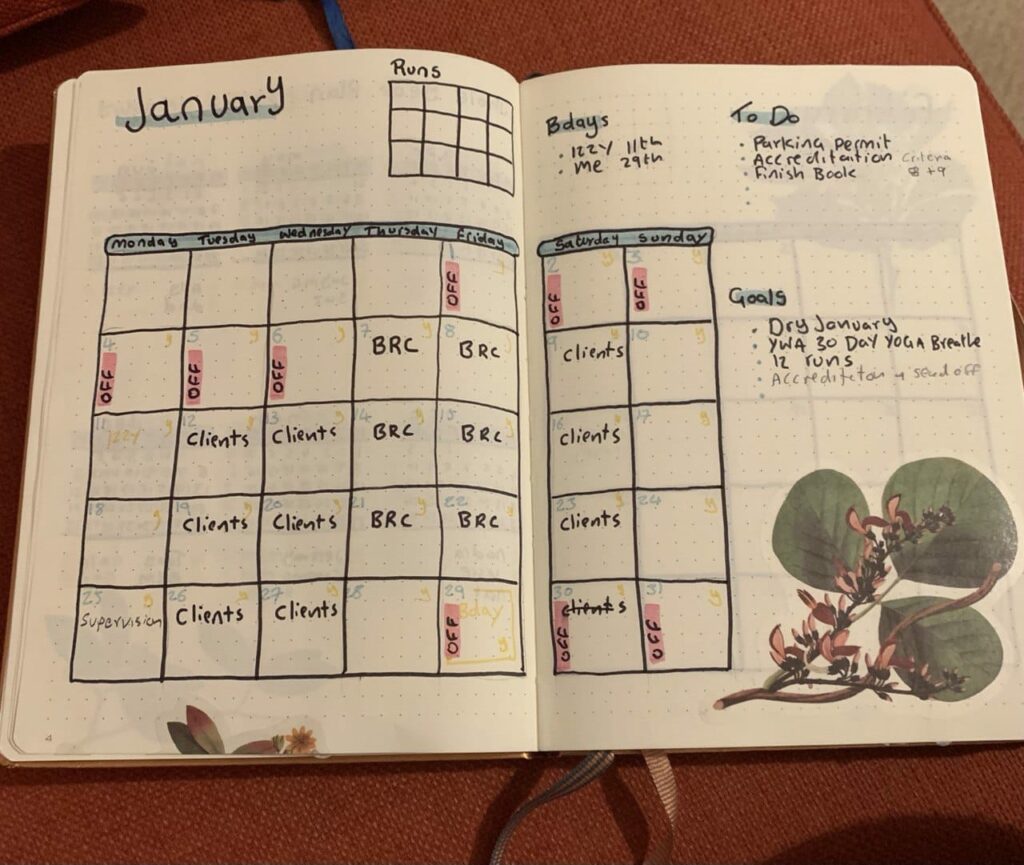 January
Runs
Bdays
• Izzy 11th
• Me 29th
To Do
• Parking permit
• Accreditation Criteria 8 + 9
• Finish Book
Monday Tuesday Wednesday Thursday Friday Saturday Sunday
1 y OFF 2 y OFF 3 y OFF
4 y OFF 5 y OFF 6 y OFF 7 y BRC 8 BRC 9 y Clients 10 y
11 Izzy y 12 y Clients 13 y Clients 14 y BRC 15 y BRC 16 y Clients 17 y
18 y 19 y Clients 20 y Clients 21 y BRC 22 y BRC 23 y Clients 24 y
25 y Supervision 26 y Clients 27 y Clients 28 y 29 OFF Bday y 30 y Clients OFF 31 y OFF
Goals
• Dry January
• YWA 30 Day YOGA Breathe
• 12 runs
• Accreditation send off
4